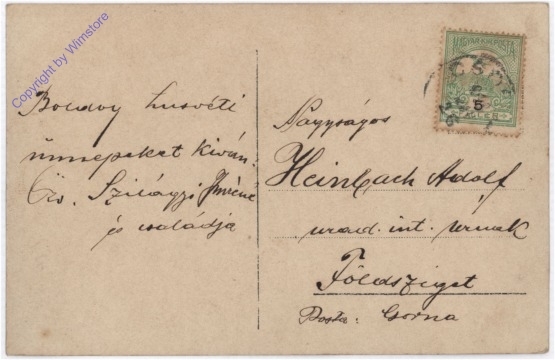 Copyright by Wimstore
Boldog husvéti
ünnepeket kíván:
Özv. Szilágyi
és családja
MAGYAR KIR. POSTA
5
FILLÉR
Nagyságos
Heinbach Adolf
urad. int. urnak
Földsziget
Posta: Csorna